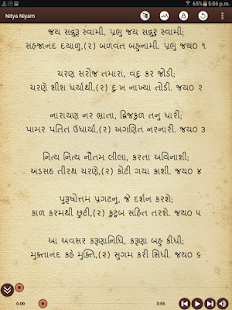 95% 5:06 p.m.
Nitya Niyam
જય સદ્ગુરૂ સ્વામી, પ્રભુ જય સદ્ગુરૂ સ્વામી;
સહજાનંદ દયાળુ,(ર) બળવંત બહુનામી. પ્રભુ જય૦ ૧
ચરણ સરોજ તમારા, વંદુ કર જોડી;
ચરણે શીશ ધર્યાથી,(ર) દુ:ખ નાખ્યા તોડી. જય૦ ૨
નારાયણ નર ભ્રાતા, દ્વિજકુળ તનુ ધારી;
પામર પતિત ઉધાર્યા,(ર) અગણિત નરનારી. જય૦ ૩
નિત્ય નિત્ય નૌતમ લીલા, કરતા અવિનાશી;
અડસઠ તીરથ ચરણે,(ર) કોટી ગયા કાશી. જય૦ ૪
પુરૂષોત્તમ પ્રગટનુ, જે દર્શન કરશે;
કાળ કરમથી છુટી,(ર) કુટુંબ સહિત તરશે. જય૦ ૫
આ અવસર કરૂણાનિધિ, કરૂણા બહુ કીધી;
મુક્તાનંદ કહે મુક્તિ,(ર) સુગમ કરી સિધી. જય૦ ૬
0:00
3:55